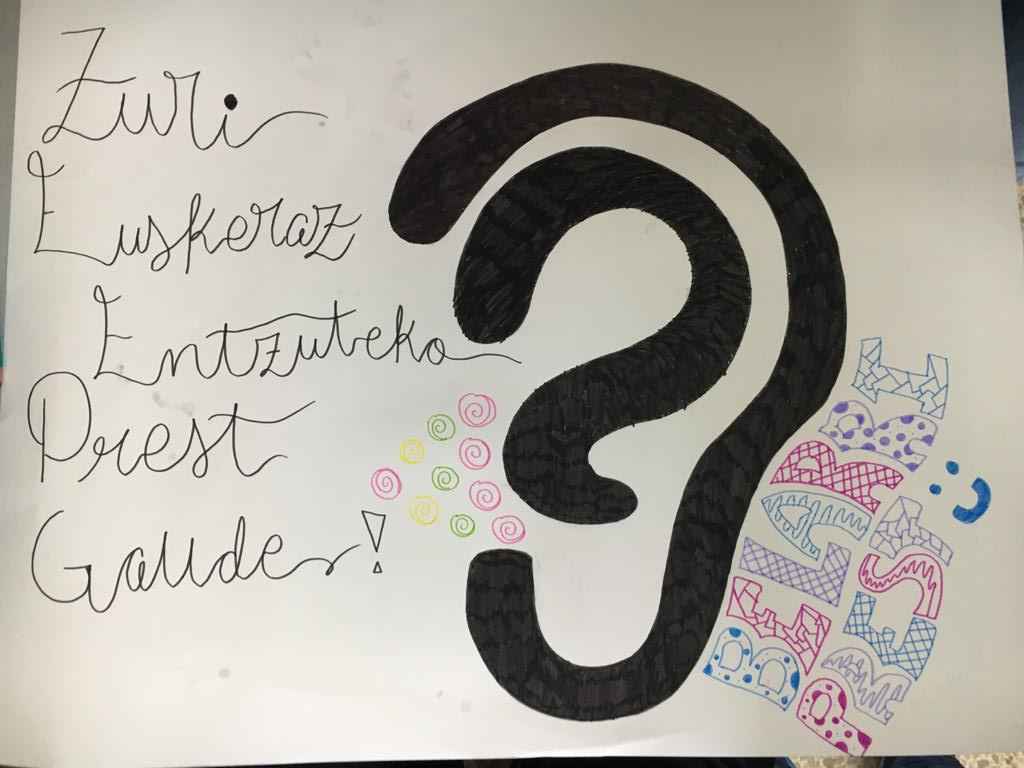 Zuri
Euskeraz
Entzuteko
Prest
Gaude!
BELARRI
PREST :)